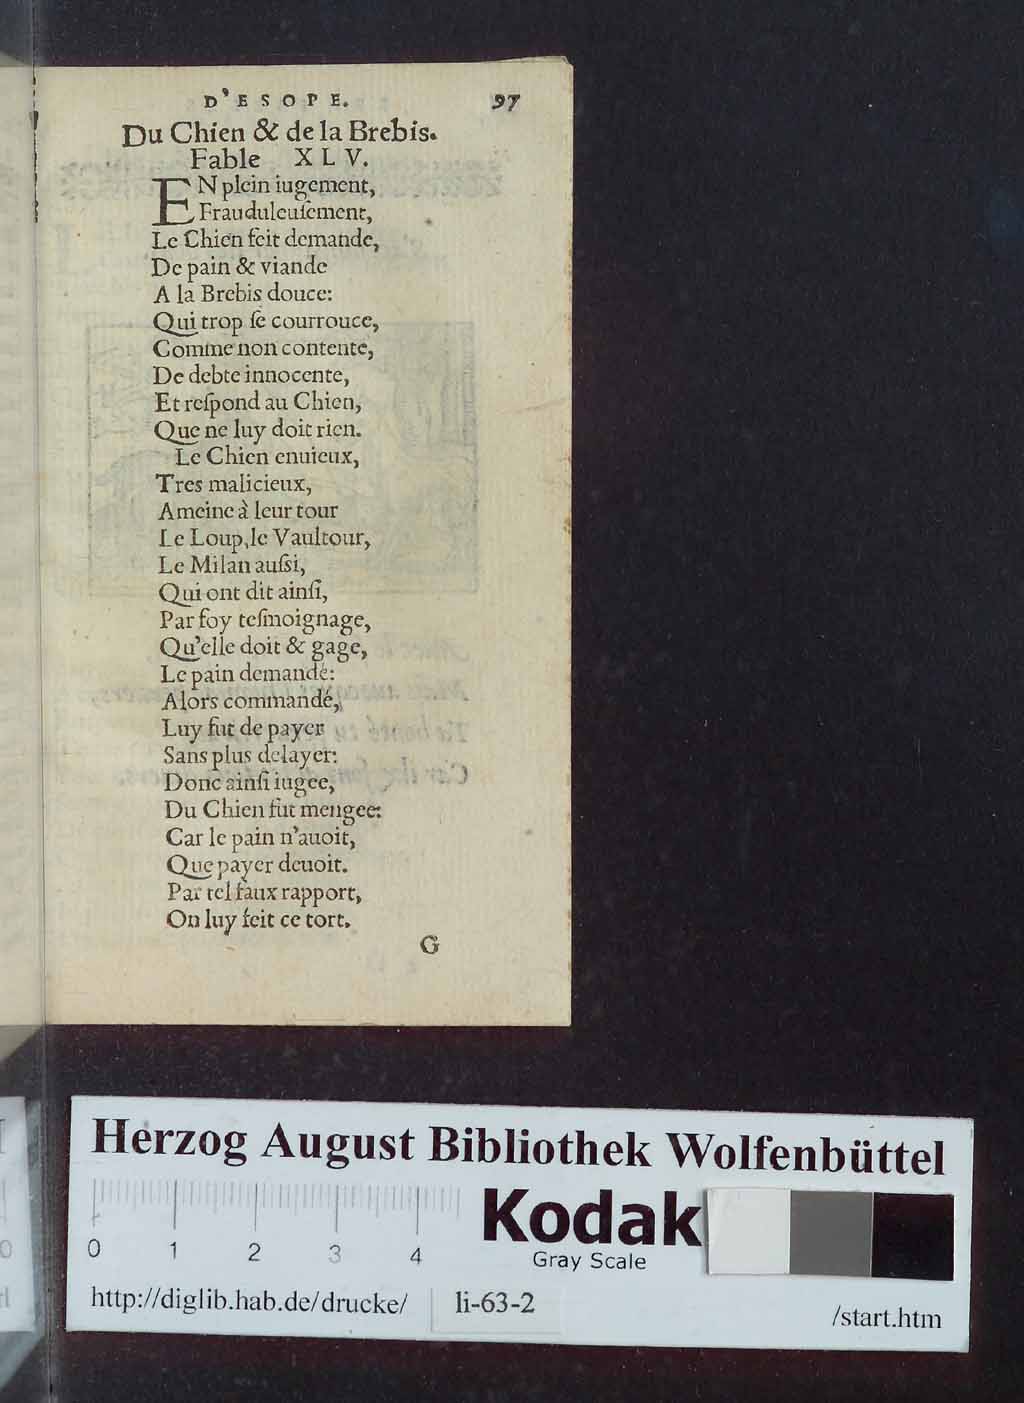 D'ESOPE. 97
Du Chien & de la Brebis.
Fable XLV.
EN plein iugement,
Frauduleuſement,
Le Chien feit demande,
De pain & viande
A la Brebis douce:
Qui trop ſe courrouce,
Comme non contente,
De debte innocente,
Et reſpond au Chien,
Que ne luy doit rien.
Le Chien enuieux,
Tres malicieux,
Ameine à leur tour
Le Loup, le Vaultour,
Le Milan auſsi,
Qui ont dit ainſi,
Par foy teſmoignage,
Qu'elle doit & gage,
Le pain demandé:
Alors commandé,
Luy fut de payer
Sans plus delayer:
Donc ainſi iugee,
Du Chien fut mengee:
Car le pain n'auoit,
Que payer deuoit.
Par tel faux rapport,
On luy feit ce tort.
G
Herzog August Bibliothek Wolfenbüttel
Kodak
0 1 2 3 4
Gray Scale
http://diglib.hab.de/drucke/ li-63-2 /start.htm